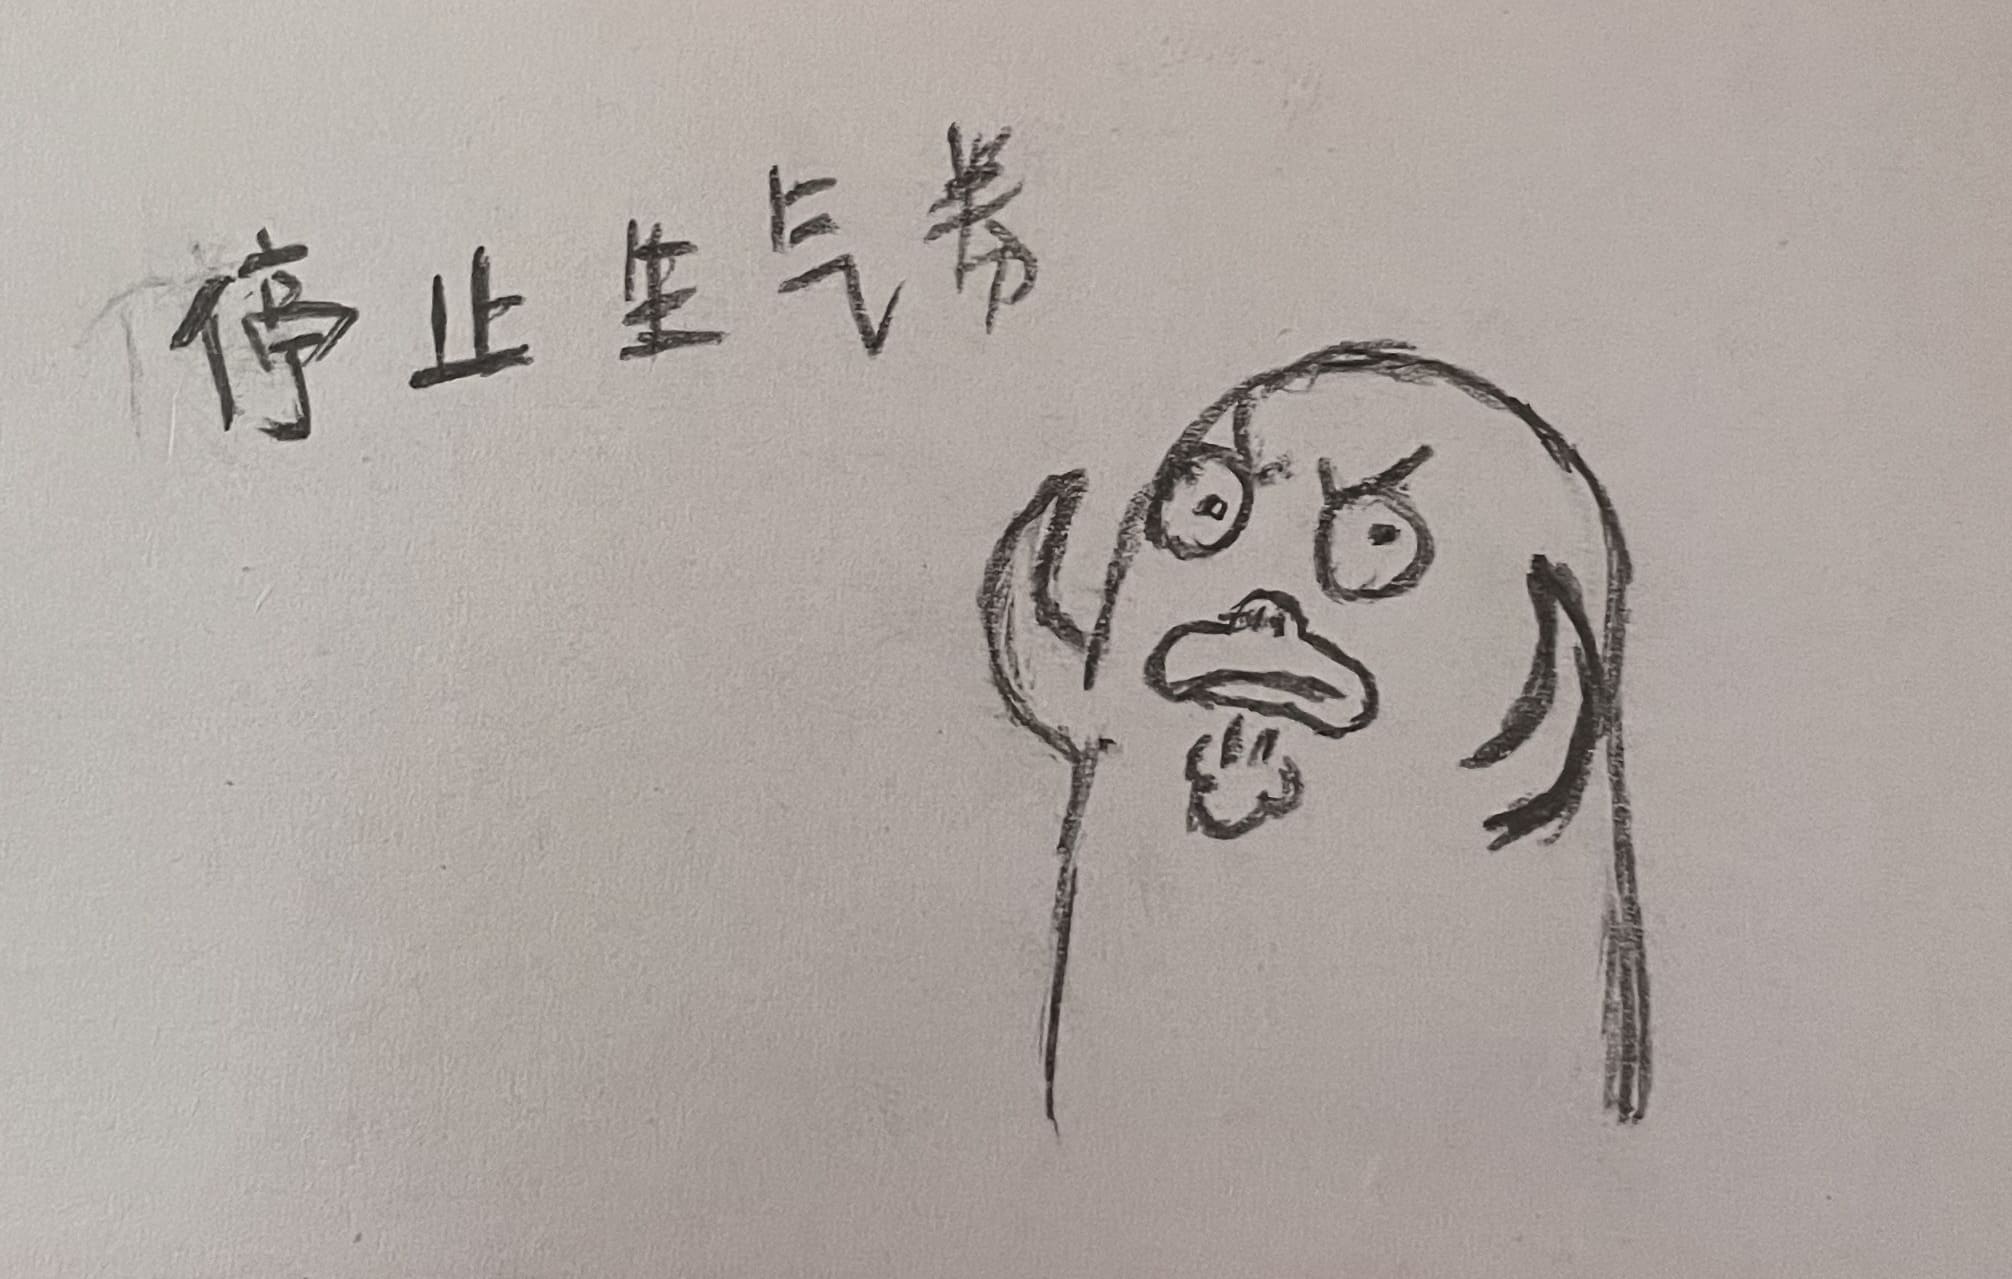 停止生气